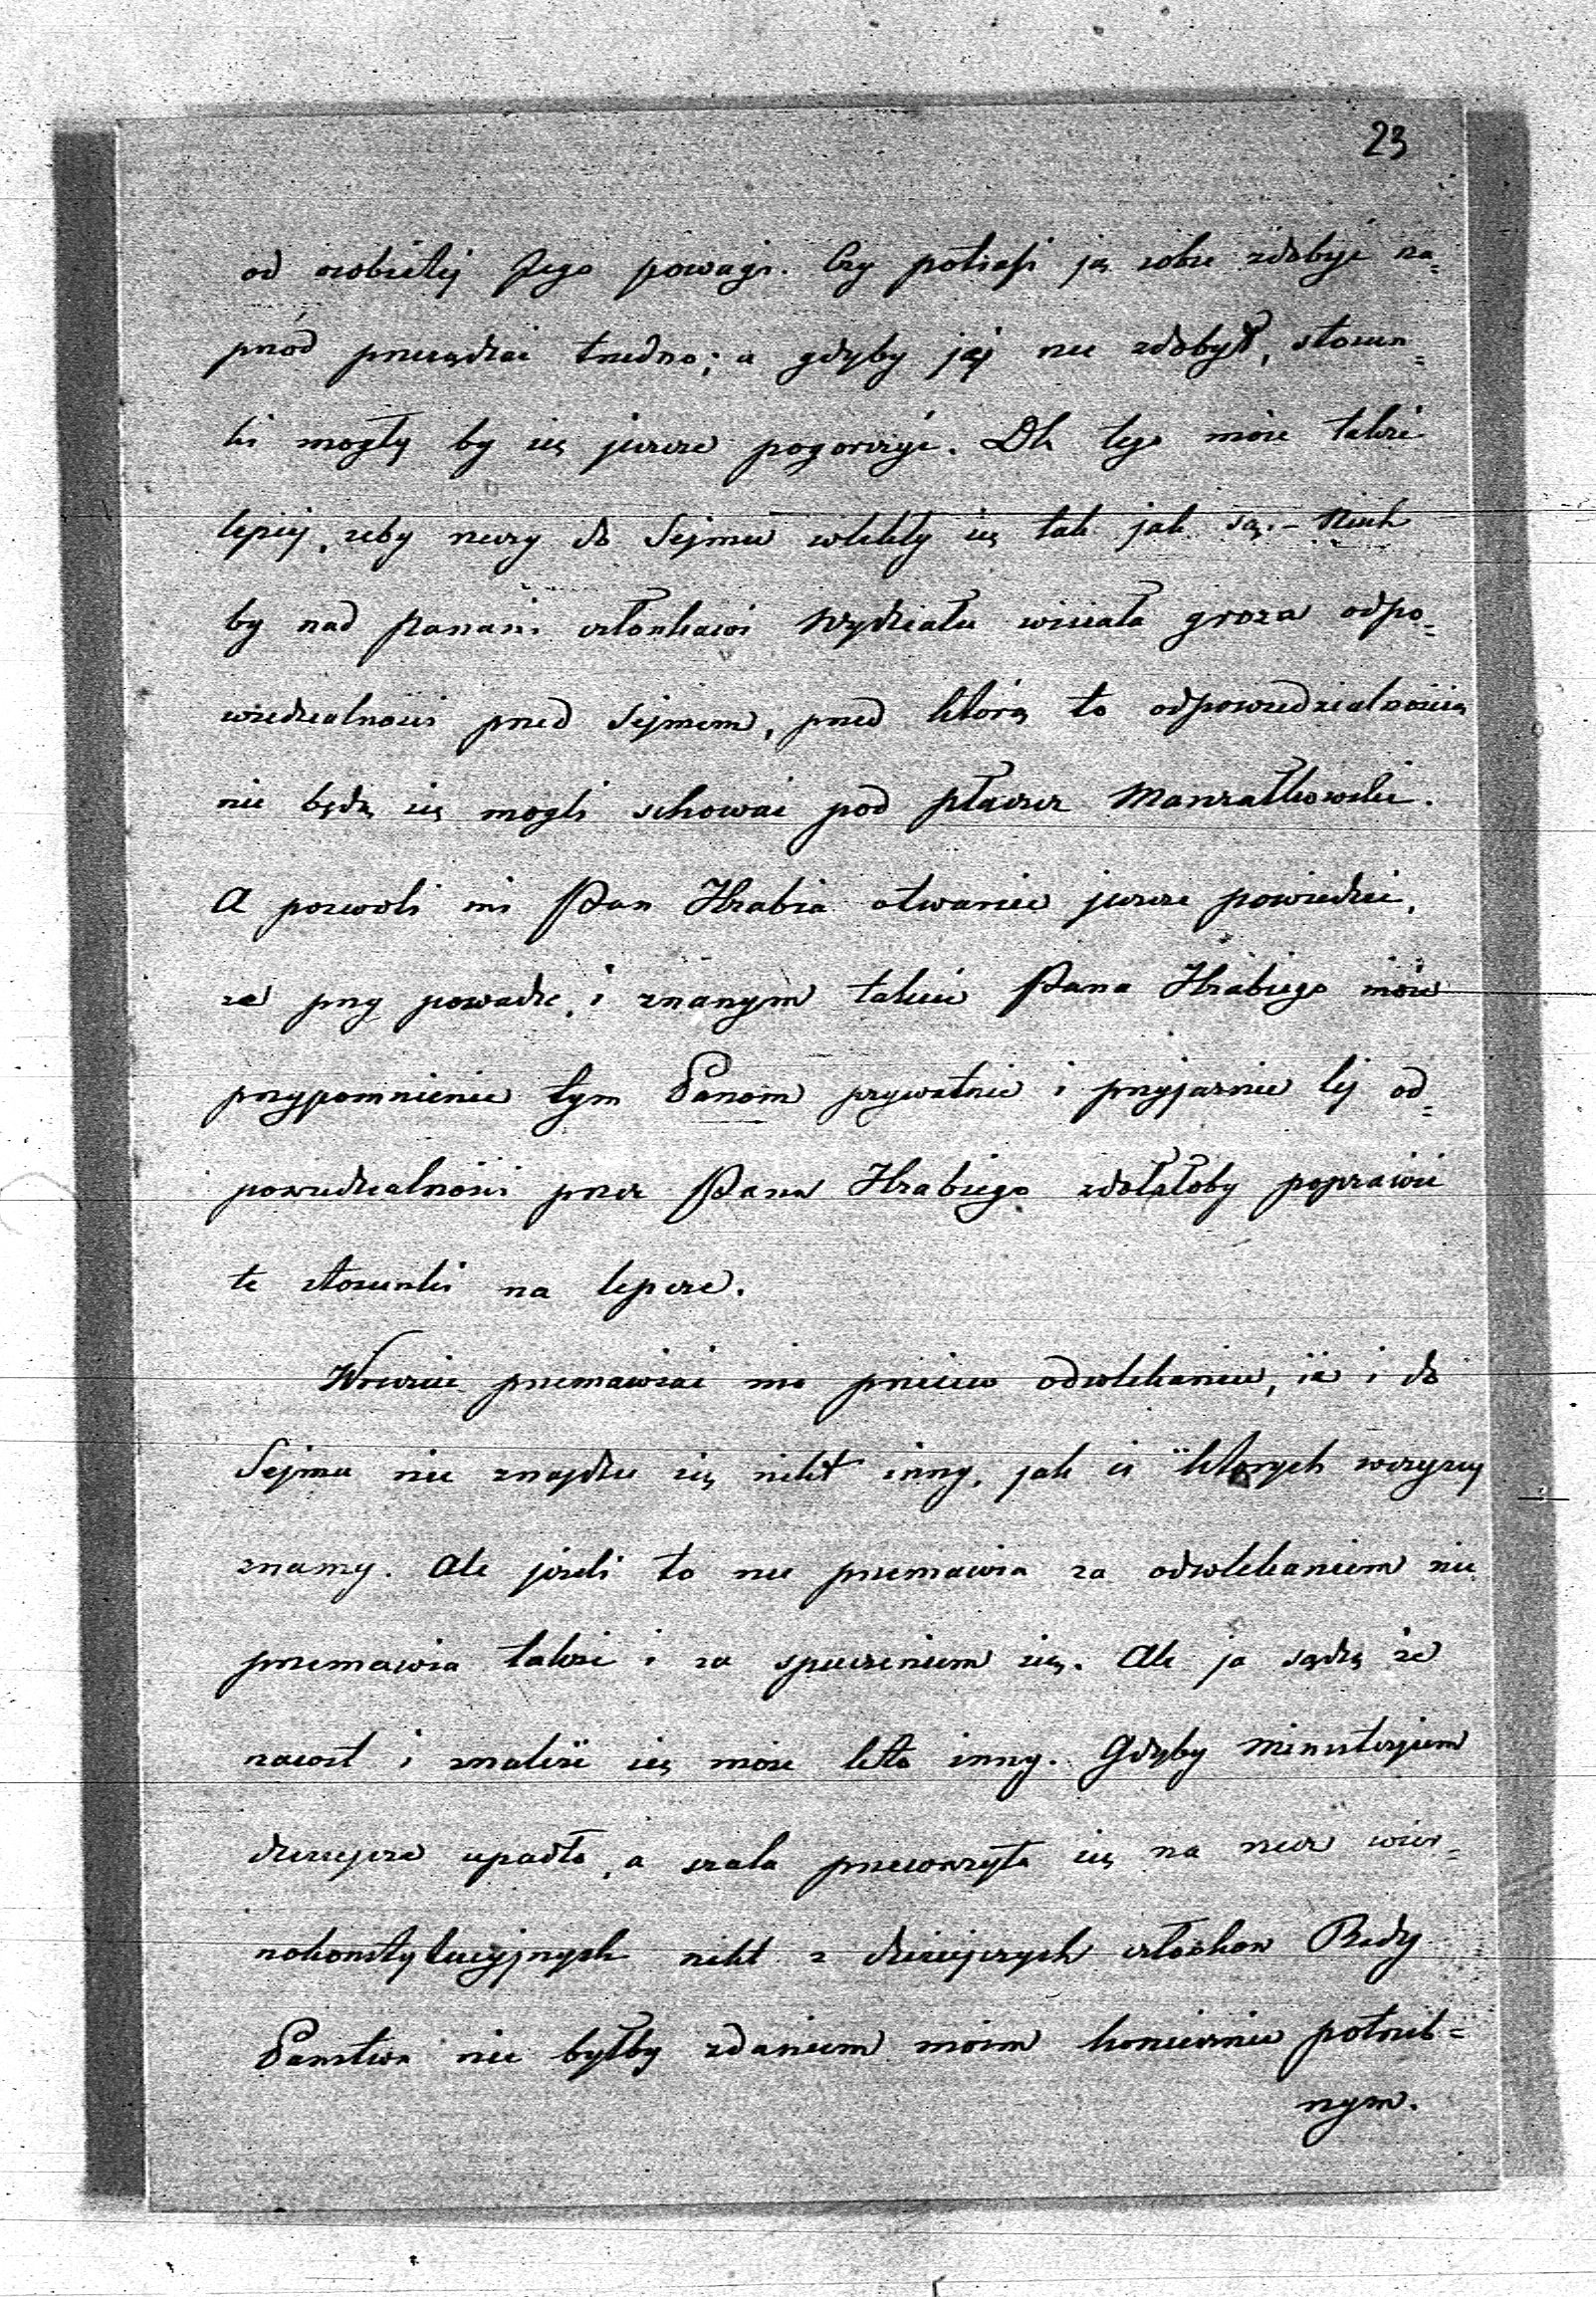 23
od osobistej Jego powagi. Czy potrafi ją sobie zdobyć na=
przód przesądzać trudno; a gdyby jej nie zdobył, stosun=
ki mogły by się jeszcze pogorszyć. Dla tego może także
lepiej, żeby rzeczy do Sejmu wlekły się tak jak są. – Niech
by nad panami członkami Wydziału wisiała groza odpo=
wiedzialności przed Sejmem, przed którą to odpowiedzialnością
nie będą się mogli schować pod płaszcz Marszałkowski.
A pozwoli mi Pan Hrabia otwarcie jeszcze powiedzieć,
że przy powadze, i znanym takcie Pana Hrabiego może
przypomnienie tym Panom prywatnie i przyjaźnie tej od=
powiedzialności przez Pana Hrabiego zdołałoby poprawić
te stosunki na lepsze.
Wreszcie przemawiać ma przeciw odwlekaniu, iż i do
Sejmu nie znajdzie się nikt inny, jak ci których wszyscy
znamy. Ale jeżeli to nie przemawia za odwlekaniem nie
przemawia także i za spieszeniem się. Ale ja sądzę że
naset i znaleźć się może kto inny. Gdyby ministerjum
dzisiejsze upadło, a szala przeważyła się na rzecz wier=
nokonstytucyjnych nikt z dzisiejszych członków Rady
Państwa nie byłby zdaniem moim koniecznie potrzeb=
nym.